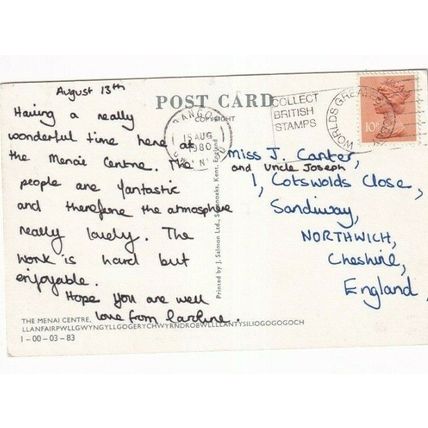 August 13th
Having a really
wonderful time here at
the Menai Centre. The
people are fantastic
and therefore the atmosphere
really lovely. The
work is hard but
enjoyable.
Hope you are well
love from Caroline.
THE MENAI CENTRE,
LLANFAIRPWLLGWYNGYLLGOGERYCHWYRNDROBWLLLLANTYSILIOGOGOGOCH
1-00-03-83
POST CARD
COPYRIGHT
Printed by J. Salmon Ltd., Sevenoaks, Kent, England
BANGOR
15 AUG
1980
COLLECT
BRITISH
STAMPS
WORLDS GREATEST
10P
Miss J. Canter,
and Uncle Joseph
1, Cotswolds Close,
Sandiway,
NORTHWICH,
Cheshire,
England